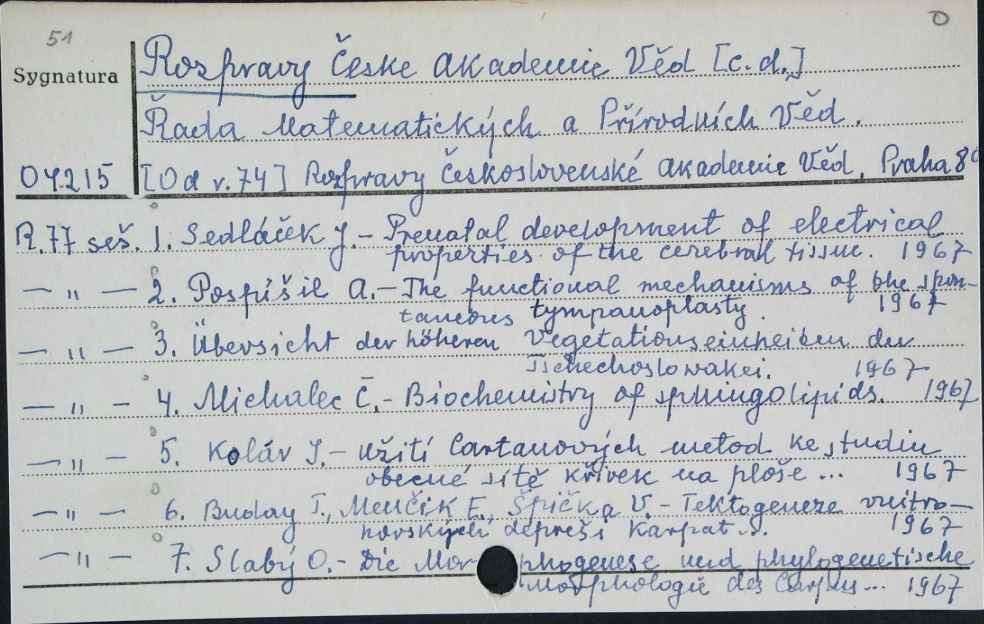 51
Sygnatura
Rozpravy České Akademie Věd [c.d.]
Řada Matematických a Přírodních Věd.
04215 [Od r. 74] Rozpravy Československé Akademie Věd. Praha 8°
R. 77 seš. 1. Sedláček J. - Prenatal development of electrical
properties of the cerebral tissue. 1967
— " — 2. Pospíšil A. - The functional mechanisms of the spon-
taneous tympanoplasty. 1967
— " — 3. Übersicht der höheren Vegetationseinheiten der
Tschechoslowakei. 1967
— " — 4. Michalec Č. - Biochemistry of sphingolipids. 1967
— " — 5. Kolář J. - Užití Cartanových metod ke studiu
obecné sítě křivek na ploše ... 1967
— " — 6. Buday T., Menčik E., Špička V. - Tektogeneze vnitro-
horských depresí Karpat. 1967
— " — 7. Slabý O. - Die Morphogenese und phylogenetische
Morphologie des Carpus ... 1967